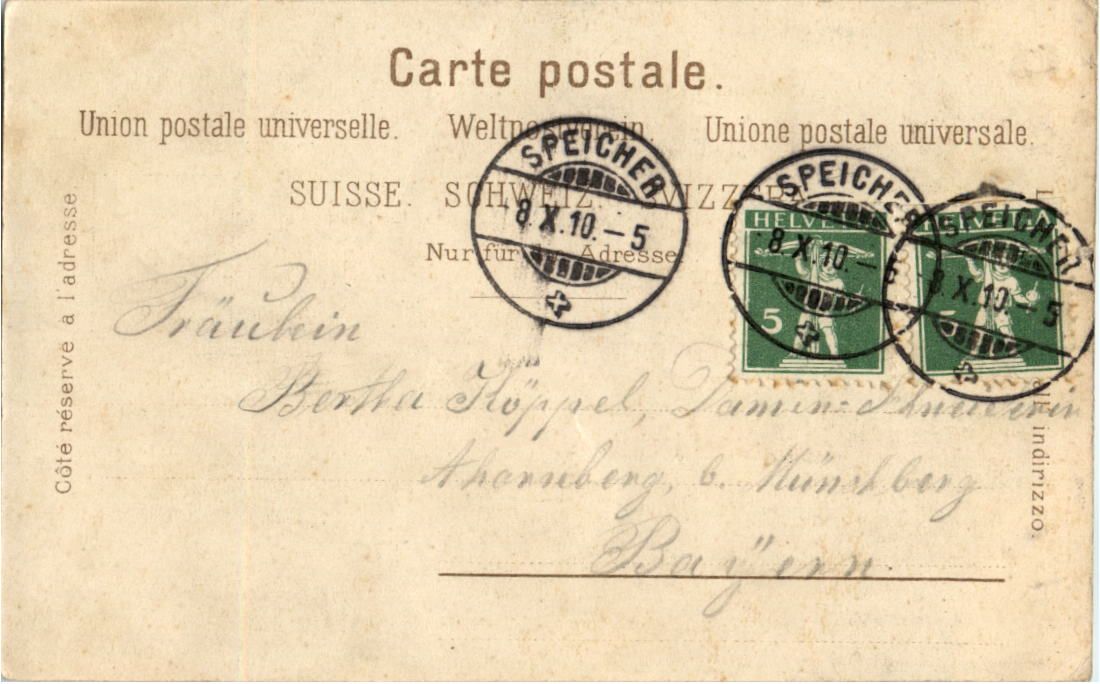 Carte postale.
Union postale universelle. Weltpostverein. Unione postale universale.
SUISSE. SCHWEIZ. SVIZZERA.
Nur für die Adresse.
Côté réservé à l'adresse
SPEICHER
8.X.10.–5
SPEICHER
8.X.10.–
HELVETIA
5
SPEICHER
8.X.10.–5
HELVETIA
5
Fräulein
Bertha Köppel, Damen-Schneiderin
Ahornberg, b. Münchberg
Bayern.
indirizzo.